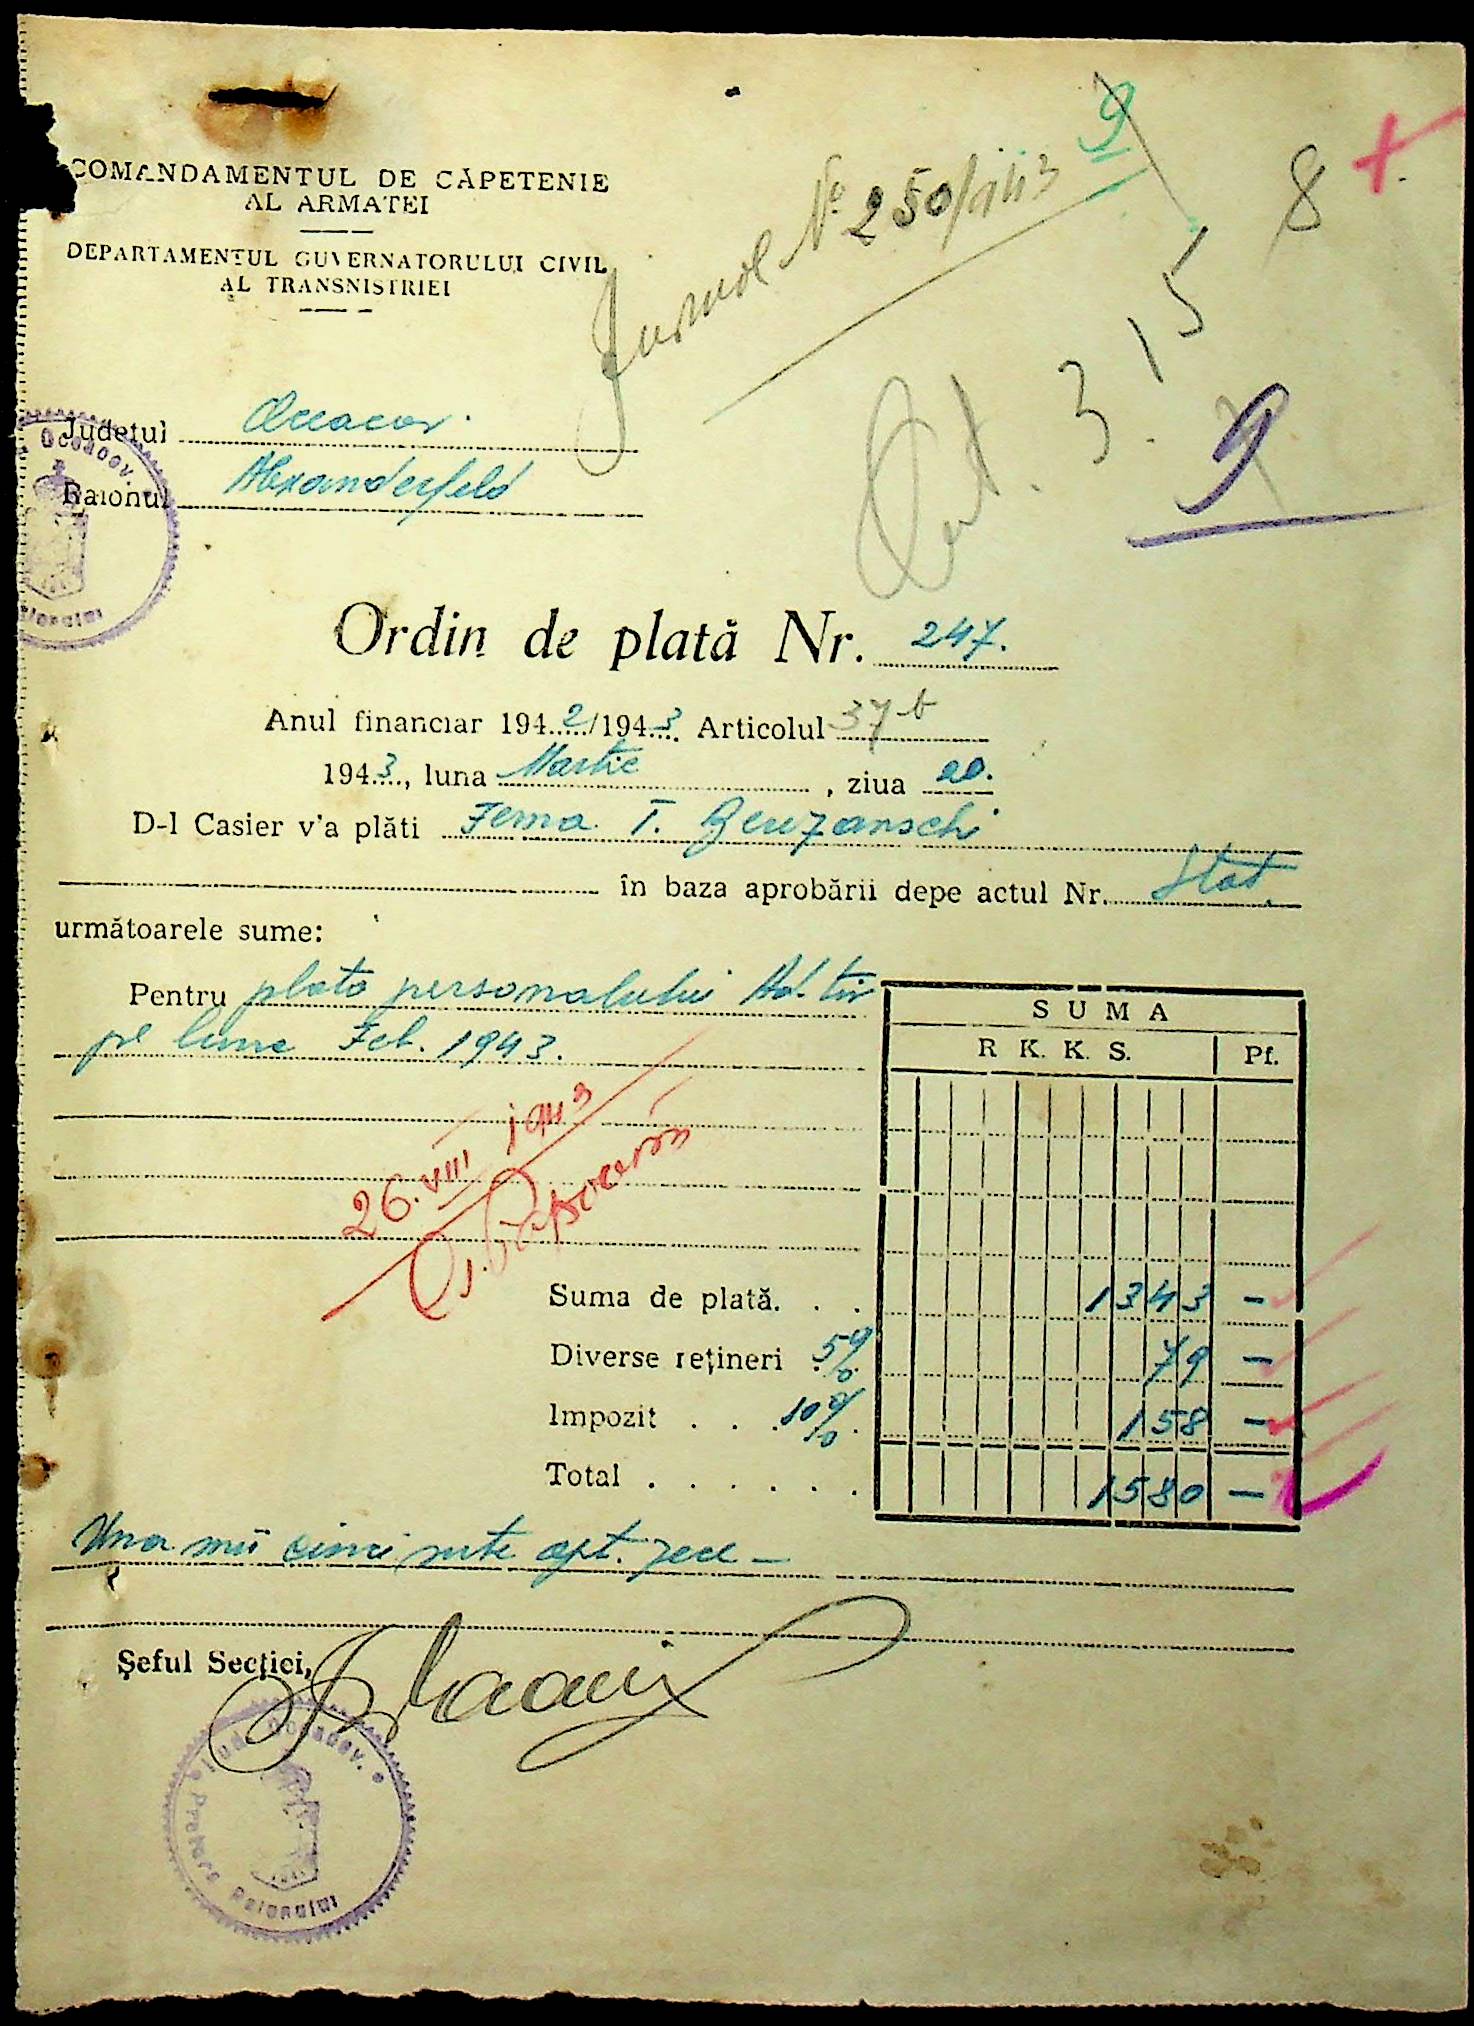 COMANDAMENTUL DE CĂPETENIE
AL ARMATEI
DEPARTAMENTUL GUVERNATORULUI CIVIL
AL TRANSNISTRIEI
Jurnal No 250/943
9
8
Art. 3.
15
9
Județul Oceacov.
Raionul Alexanderfeld
Ordin de plată Nr. 247.
Anul financiar 1942/1943 Articolul 37 b
1943, luna Martie, ziua 20.
D-l Casier v'a plăti Jema T. Beuzanschi
în baza aprobării depe actul Nr. Stat.
următoarele sume:
Pentru plata personalului Ad-tiv
pe luna Feb. 1943.
SUMA
R K. K. S. Pf.
26.VIII 1943
Suma de plată. . . 1343 -
Diverse rețineri 5% 79 -
Impozit . . . 10% . 158 -
Total . . . . . . 1580 -
Una mii cinci sute opt. zece -
Șeful Secției,
Jud. Oceacov.
Pretura Raionului